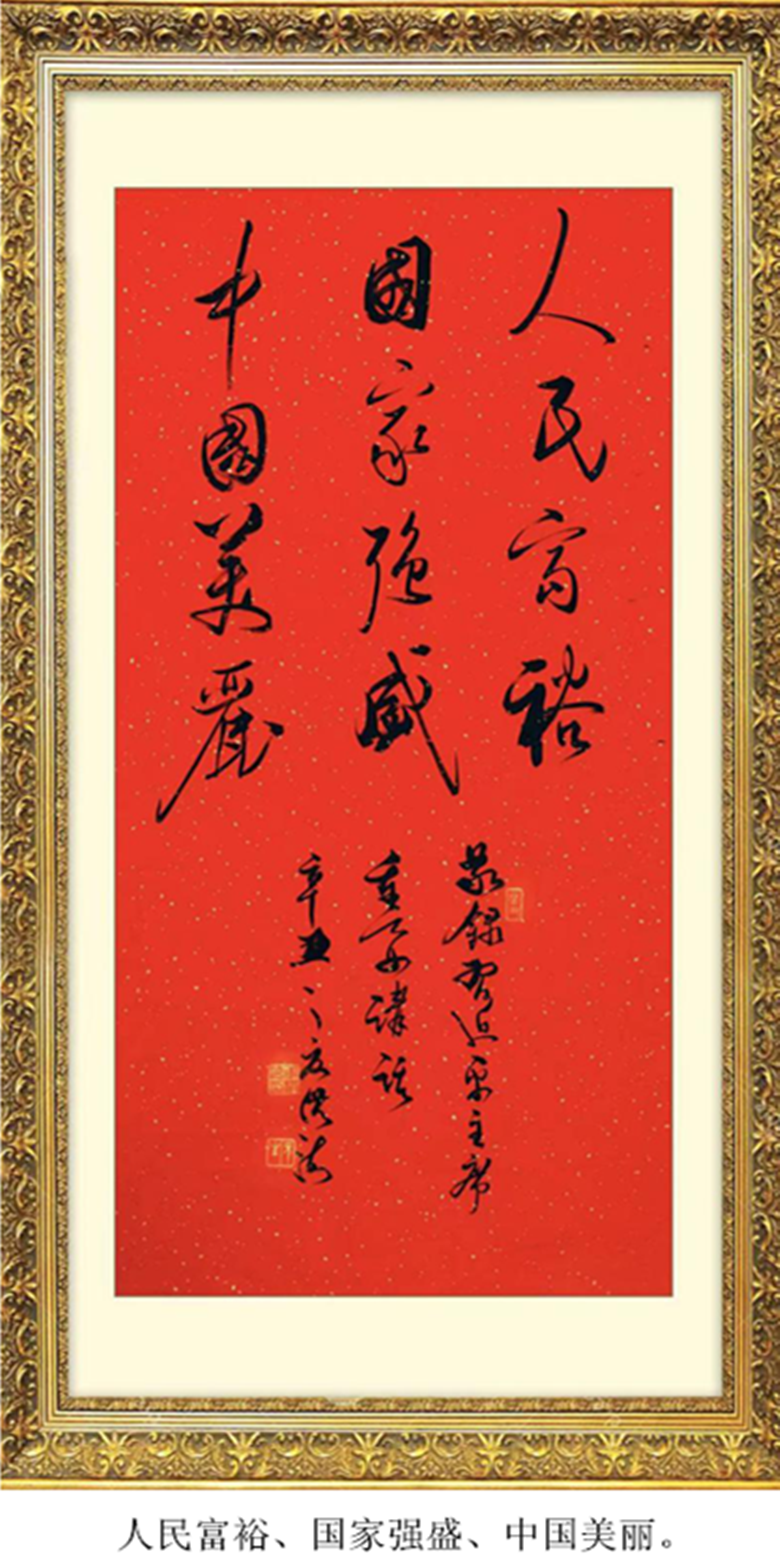 人民富裕
国家强盛
中国美麗
敬録習近平主席
重要講話
辛丑之夏洪涛
人民富裕、国家强盛、中国美丽。